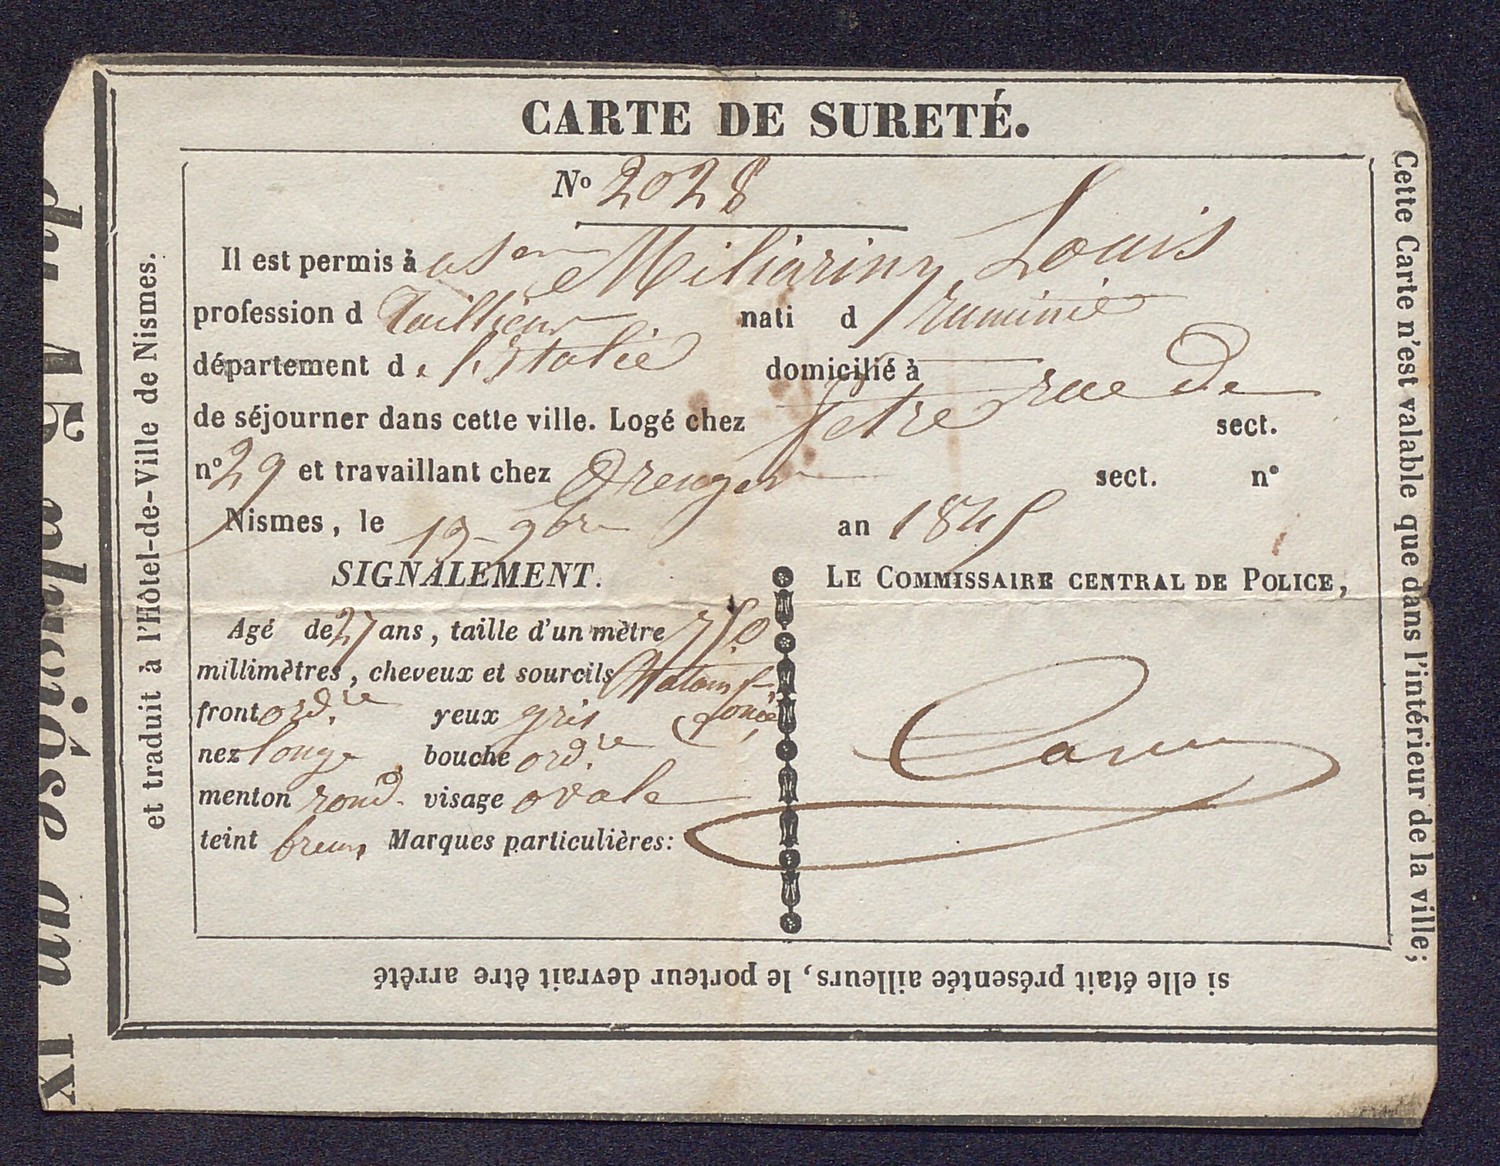 CARTE DE SURETÉ.
Nº 2028
Il est permis à Miliariny Louis
profession d Tailleur nati d ruminie
département d . l'Italie domicilié à
de séjourner dans cette ville. Logé chez rue de sect.
nº 29 et travaillant chez sect. nº
Nismes, le 9bre an 1845
SIGNALEMENT.
LE COMMISSAIRE CENTRAL DE POLICE,
Agé de 27 ans, taille d'un mètre 750
millimètres, cheveux et sourcils Chatain
foncé
front ordre yeux gris
nez longe bouche ordre
menton rond. visage ovale
teint brun Marques particulières:
Cette Carte n'est valable que dans l'intérieur de la ville;
si elle était présentée ailleurs, le porteur devrait être arrêté
et traduit à l'Hôtel-de-Ville de Nismes.